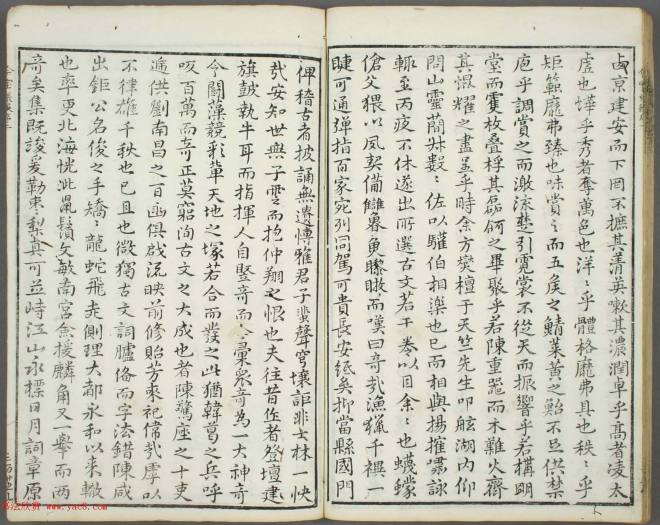 京建安而下罔不摭其菁英嗽其濃潤卓乎高者凌太
虛也燁乎秀者奪萬色也洋〻乎體格靡弗具也秩〻乎
矩範靡弗臻也味賞〻而五矦之鯖萊黃之鮐不旦供禁
庖乎調賞之而激流楚引霓裳不從天而振響乎若搆明
堂而䨥枚疊桴其磊何之畢聚乎若陳重器而木難火齊
真焜耀之盡並乎時余方樊檀于天竺先生叩舷湖内仰
閃山靈蘭數〻佐以驩伯相樂也已而相與揚搉嘯詠
輙並丙夜不休遂出所選古文若干卷以目余〻也蠛蠓
傖父猥以夙契備讐魯魚而嘆曰奇㢤漁獵千禩一
睫可通彈指百家宛列同駕可貴長安紙矣抑當縣國門
俾稽古者披誦無遺博雅君子蜚聲穹壤詎非士林一快
㢤安知世無子雲而抱仲翔之恨也夫往昔㑅者登壇建
旗鼓執牛耳而指揮人自竪奇而今彙衆奇為一大神奇
今闢藻競彩葷天地之塚若合而發之此猶韓葛之兵呼
吸百萬而奇正莫窮洵古文之大成也者陳驚座之十吏
遞供劉南昌之百函俱啟流映前修貽芳來祀偉㢤虖以
不律雄千秋也已且也微獨古文詞臚俻而字法錯陳咸
出鉅公名俊之手矯〻龍蛇飛走則理大都永和以來轍
也率更北海恍泚鼠鬚文敏南宮㑒援麟角又一舉而两
奇矣集既竣爰勒棗〻梨真可並峙江山永標日月詞章原